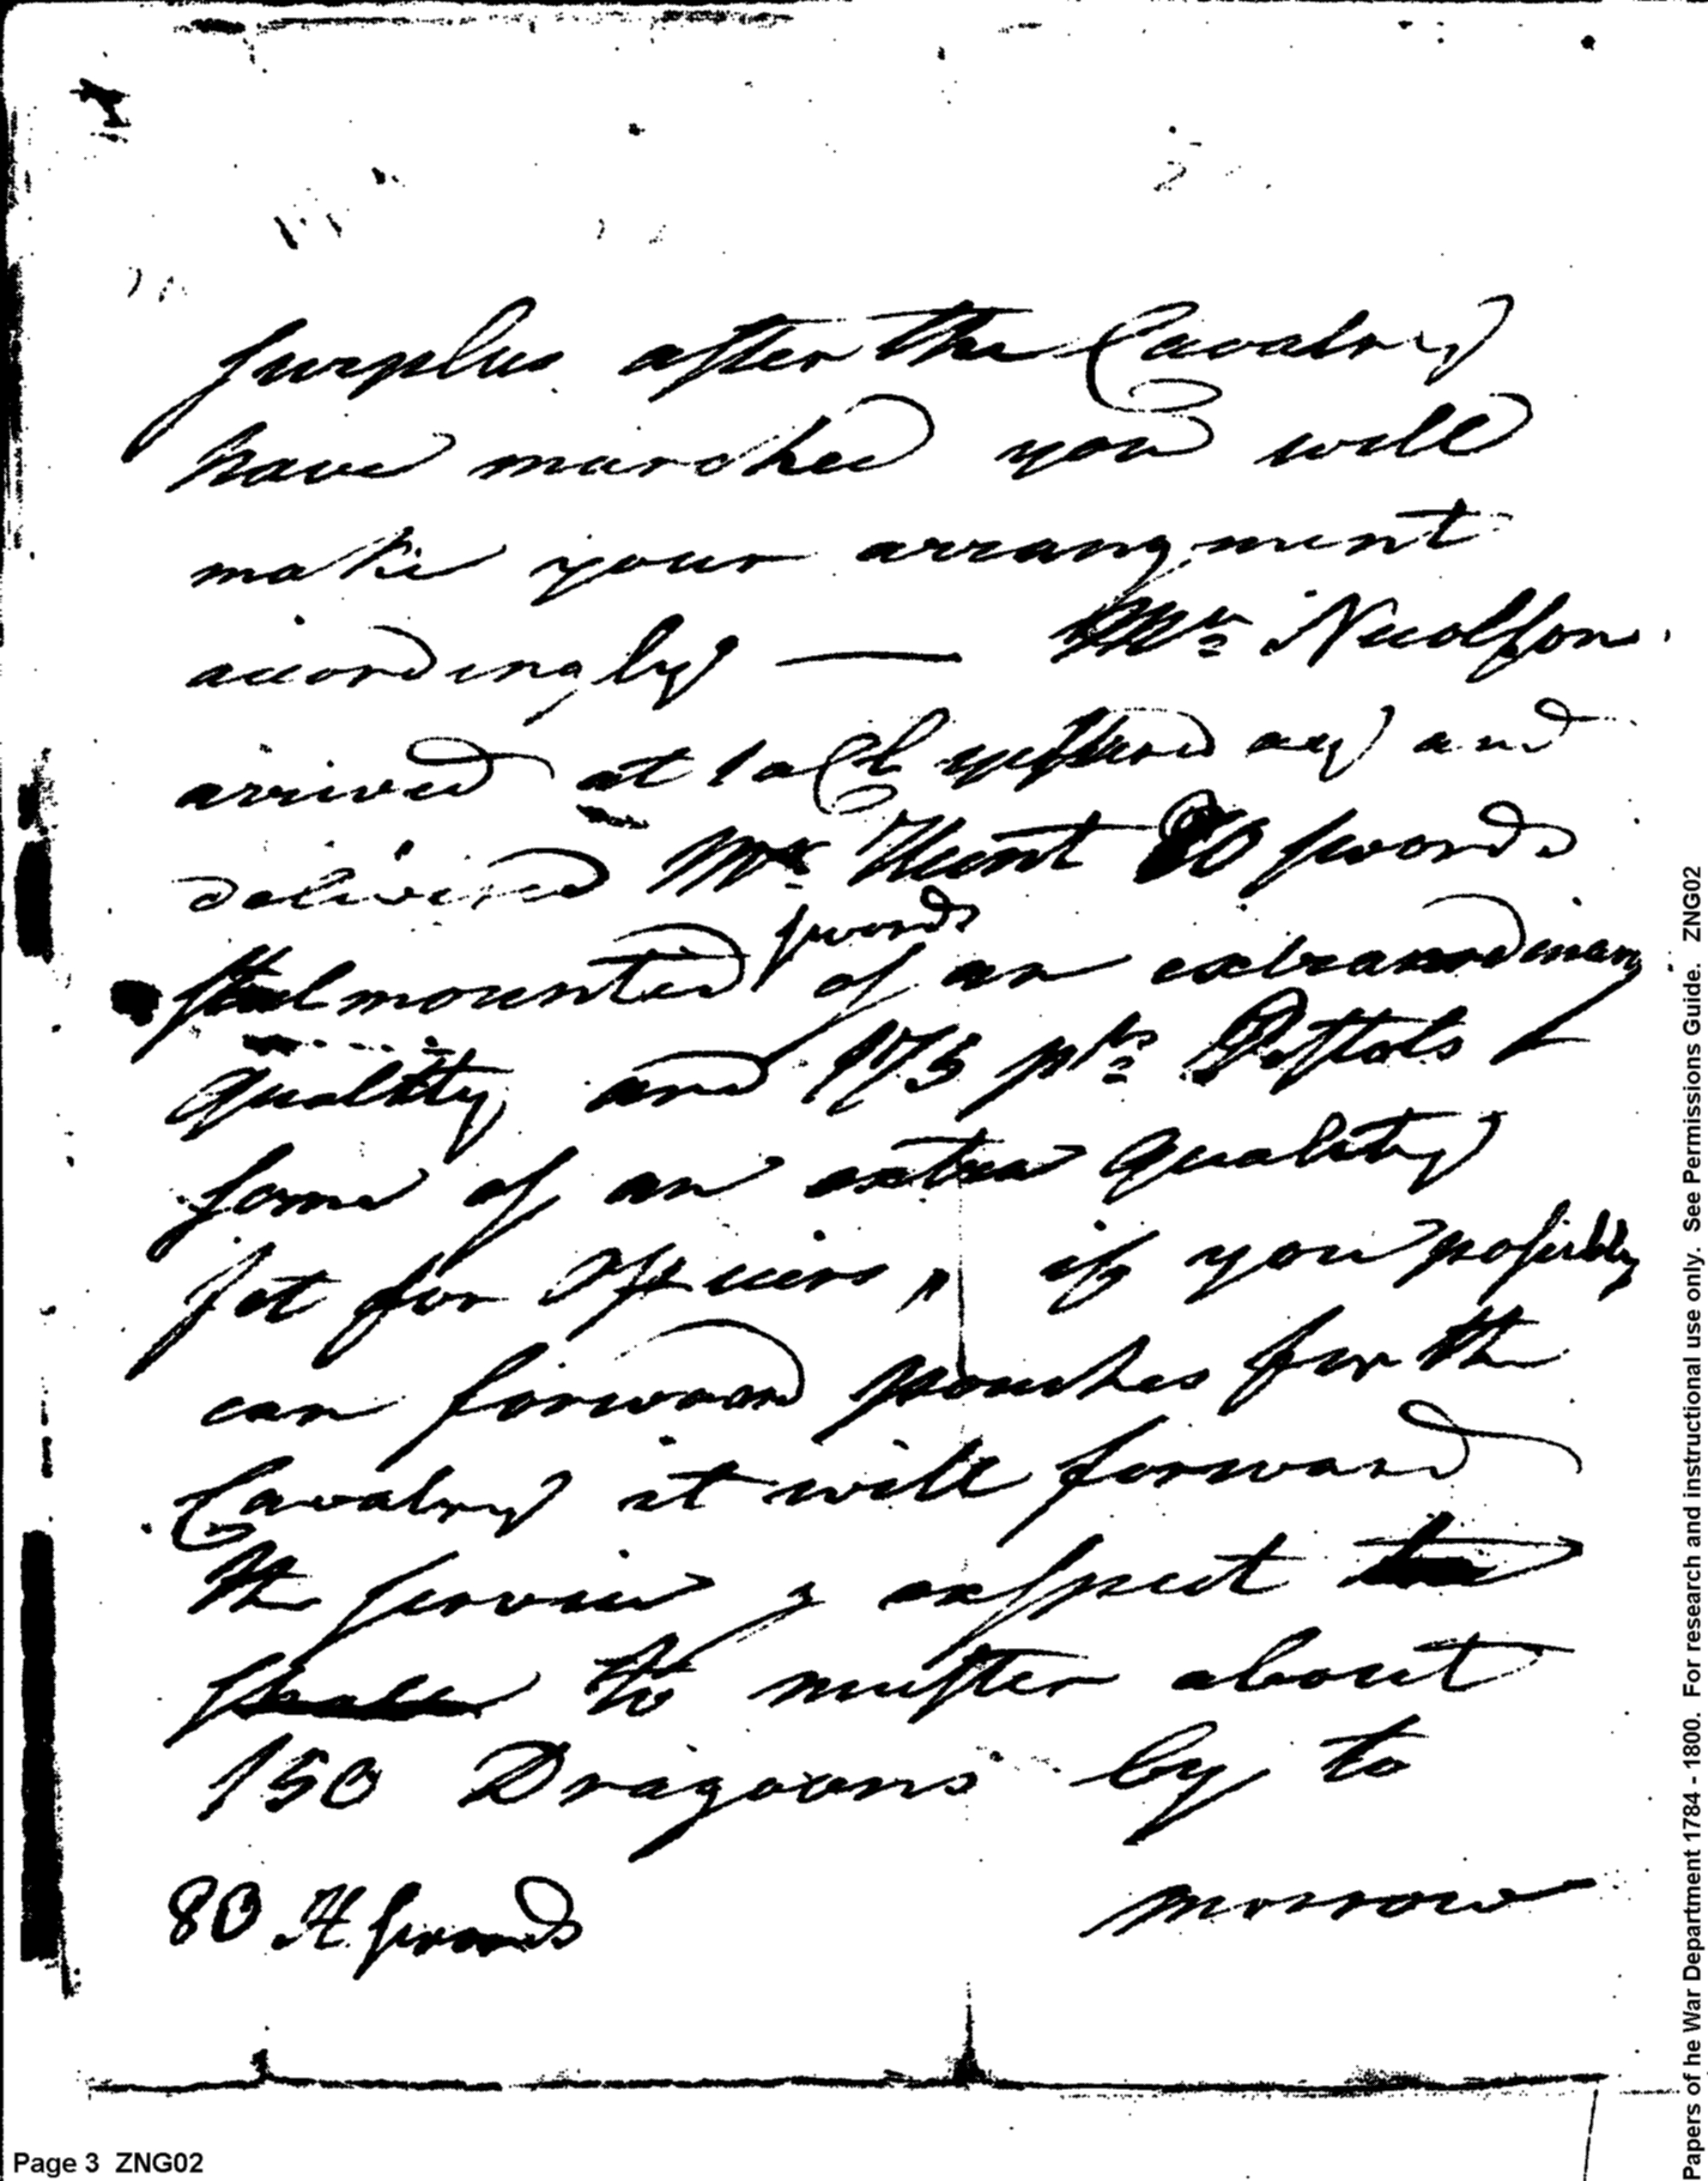 surplus after the Cavalry
have marched you will
make your arrangment
accordingly — Mr. Nicolson
arrived at 1 oCl yesterday and
delivered Mr. Hunt 80 swords
swords
steel mounted of an extraordinary
quality and 173 prs. Pistols
some of an extra quality
fit for officers, if you possibly
can forward pouches for the
Cavalry it will forward
the service, expect
to muster about
150 Dragoons by to
morrow
80 H swords
Page 3 ZNG02
Papers of he War Department 1784 - 1800. For research and instructional use only. See Permissions Guide. ZNG02